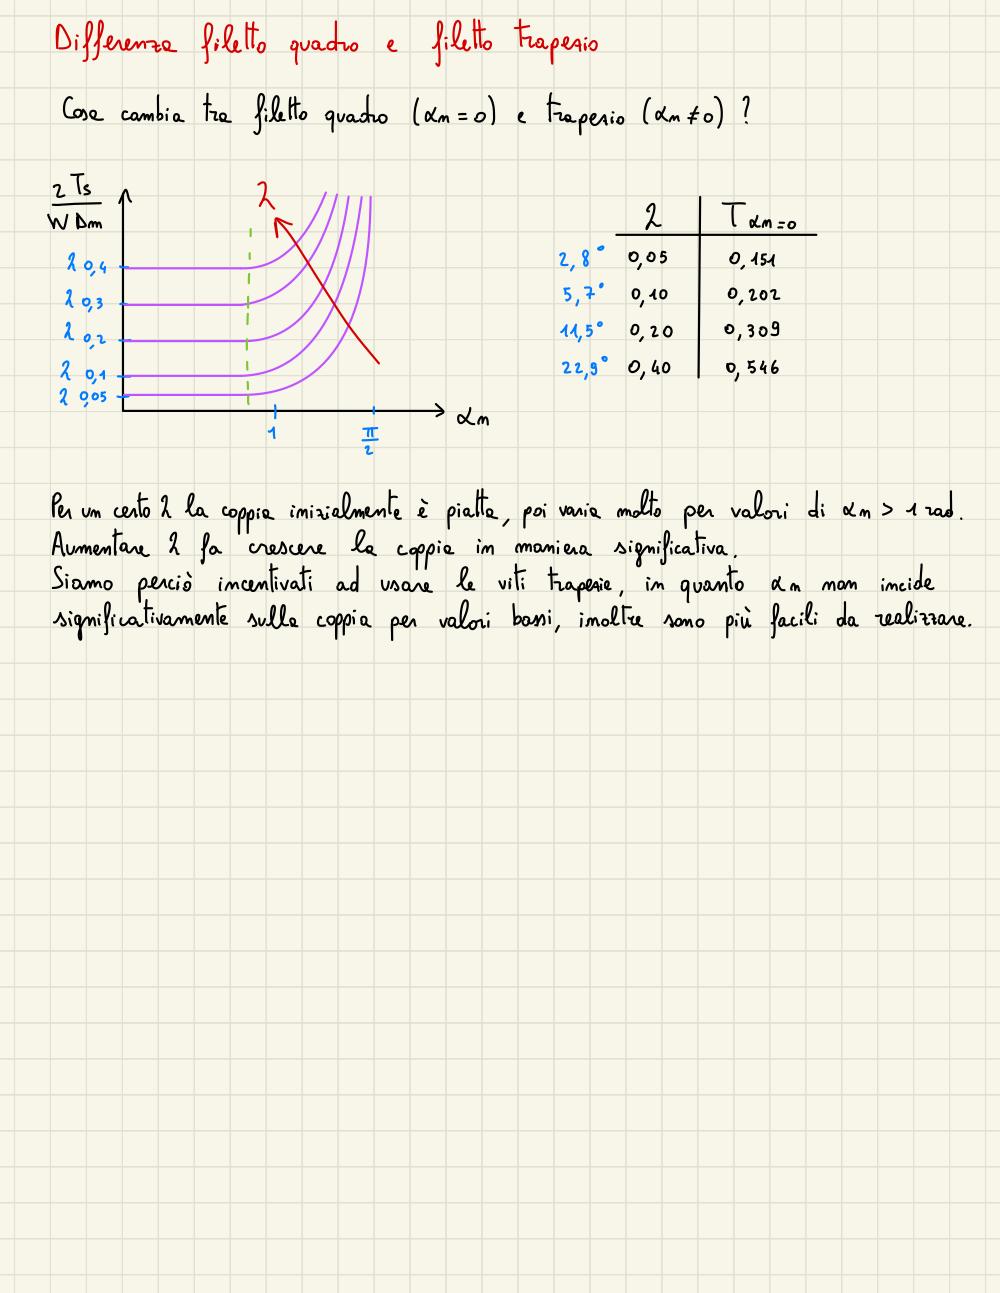 Differenza filetto quadro e filetto trapezio
Cosa cambia tra filetto quadro (αn = 0) e trapezio (αn ≠ 0) ?
2 Ts
W Dm
λ
λ 0,4
λ 0,3
λ 0,2
λ 0,1
λ 0,05
1
π
2
αn
λ T αn=0
2,8° 0,05 0,151
5,7° 0,10 0,202
11,5° 0,20 0,309
22,9° 0,40 0,546
Per un certo λ la coppia inizialmente è piatta, poi varia molto per valori di αn > 1 rad.
Aumentare λ fa crescere la coppia in maniera significativa.
Siamo perciò incentivati ad usare le viti trapezie, in quanto αn non incide
significativamente sulla coppia per valori bassi, inoltre sono più facili da realizzare.